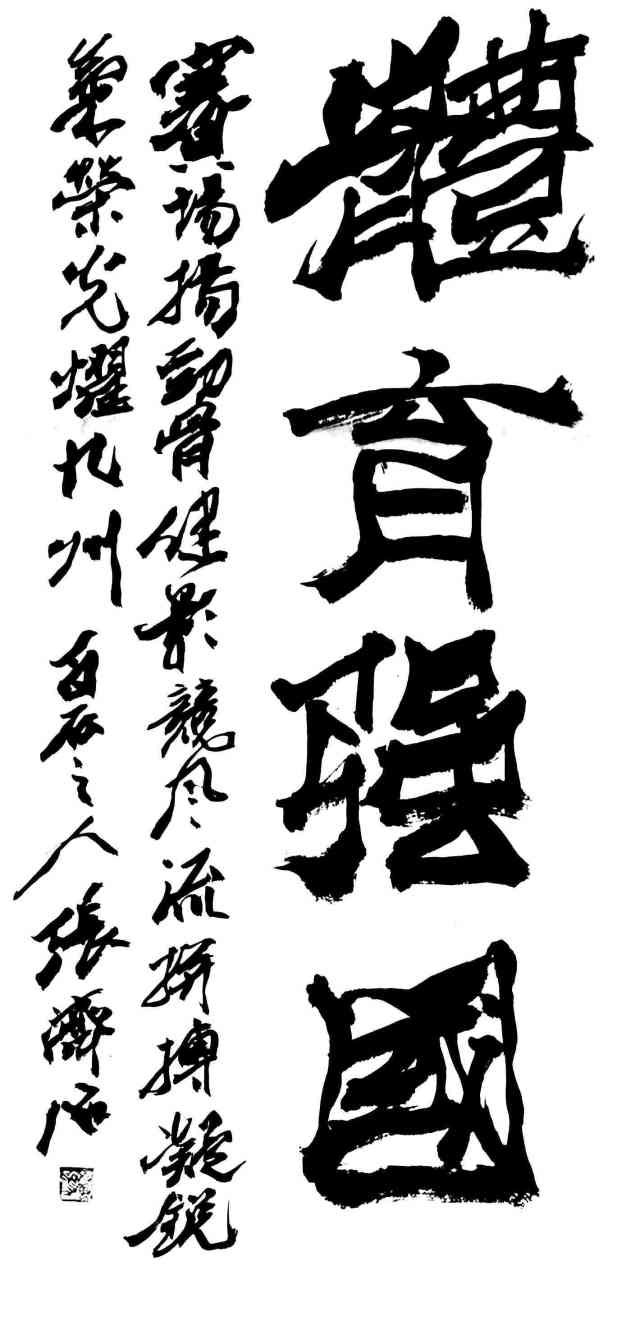 體育强國
賽場揚勁骨健影競风流拼搏凝銳
氣榮光耀九州 百石之人張濟石